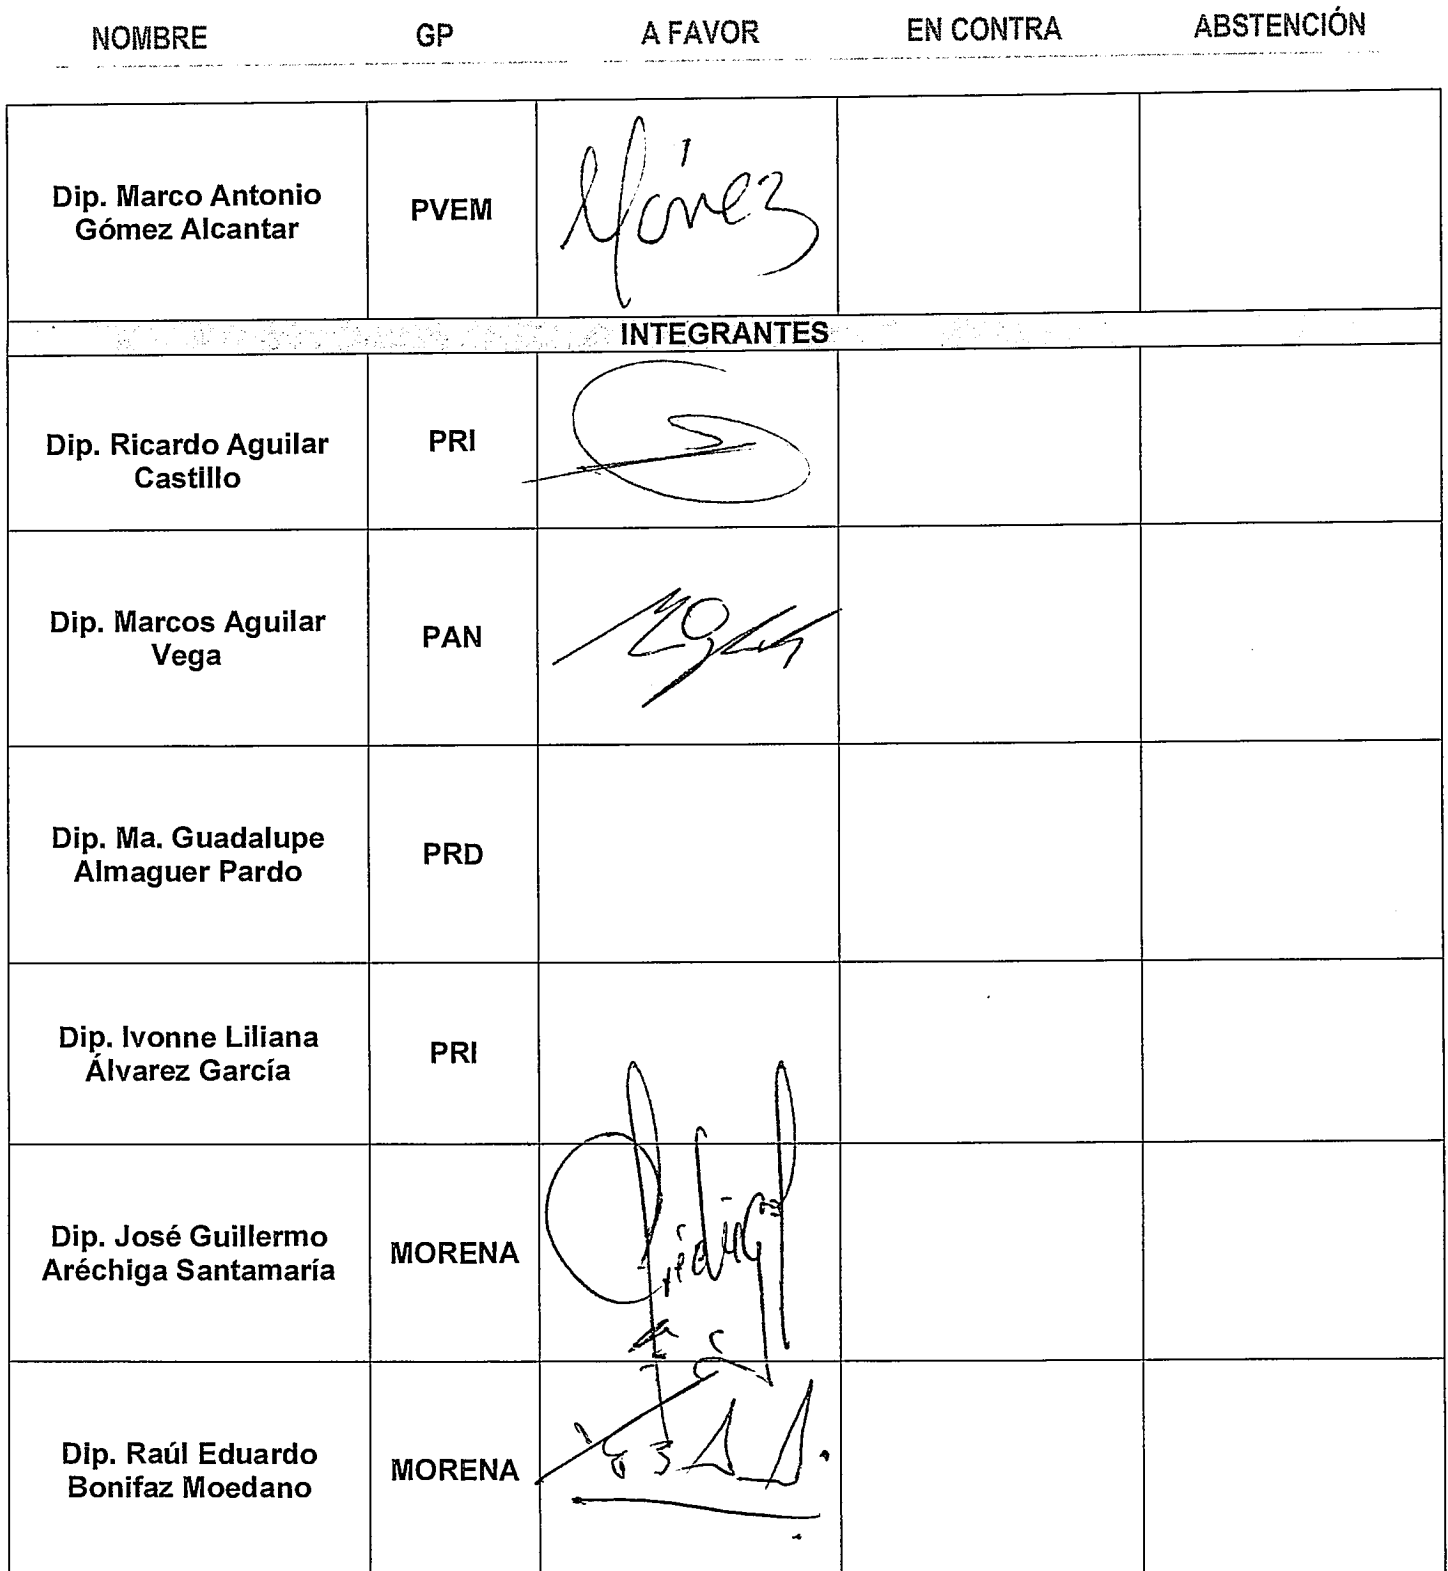 NOMBRE GP A FAVOR EN CONTRA ABSTENCIÓN
Dip. Marco Antonio
Gómez Alcantar
PVEM
INTEGRANTES
Dip. Ricardo Aguilar
Castillo
PRI
Dip. Marcos Aguilar
Vega
PAN
Dip. Ma. Guadalupe
Almaguer Pardo
PRD
Dip. Ivonne Liliana
Álvarez García
PRI
Dip. José Guillermo
Aréchiga Santamaría
MORENA
Dip. Raúl Eduardo
Bonifaz Moedano
MORENA